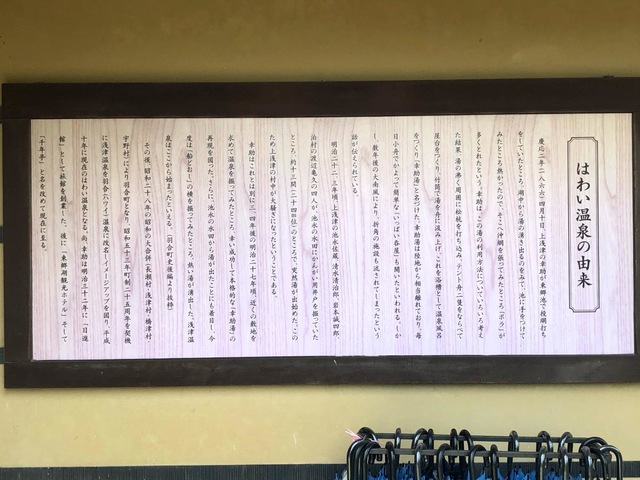 はわい温泉の由来
慶応二年(一八六六)四月十日、上浅津の幸助が東郷池で投網打ち
をしていたところ、湖中から湯の湧き出るのをみて、池に手をつけて
みたところ熱かったので、そこへ沖網を張ってみたところ「ボラ」が
多くとれたという。幸助は、この湯の利用方法についていろいろ考え
た結果、湯の沸く周囲に松杭を打ち込み、テント舟二隻をならべて
屋台をつくり、竹筒で湯を舟に汲み上げ、これを浴槽として温泉風呂
をつくり「幸助湯」と名づけた。幸助湯は陸地から相当離れており、毎
日小舟でかよって簡単な「いっぱい呑屋」も開いたといわれる。しか
し、数年後の大南風により、折角の施設も流されてしまったという
話が伝えられている。
明治二十二、三年頃、上浅津の池永佐蔵、清水清治郎、岩本誠四郎
泊村の渡辺亀久の四人が、池永の水田にかんがい用井戸を掘っていた
ところ、約十三間(二十四m位)のところで、突然湯が出始めた。この
ため上浅津の村中が大騒ぎになったということである。
幸助はこれとは別に三、四年後の明治二十七年頃、近くの敷地を
求めて温泉を掘ってみたところ、幸い成功して本格的な「幸助湯」の
再現を図った。さらに、池永の水田から湯が出たことにも着目し、今
度は「船どおし」の横を掘ってみたところ、熱い湯が湧出した。浅津温
泉はここから始まったといえる。(羽合町史後編より抜粋)
その後、昭和二十八年の昭和の大合併(長瀬村、浅津村、橋津村、
宇野村)により羽合町となり、昭和五十三年町制二十五周年を契機
に浅津温泉を羽合(ハワイ)温泉に改名しイメージアップを図り、平成
十年に現在のはわい温泉となる。尚、幸助は明治三十二年に「日進
館」として旅館を創業した。後に「東郷湖観光ホテル」そして
「千年亭」と名を改めて現在に至る。